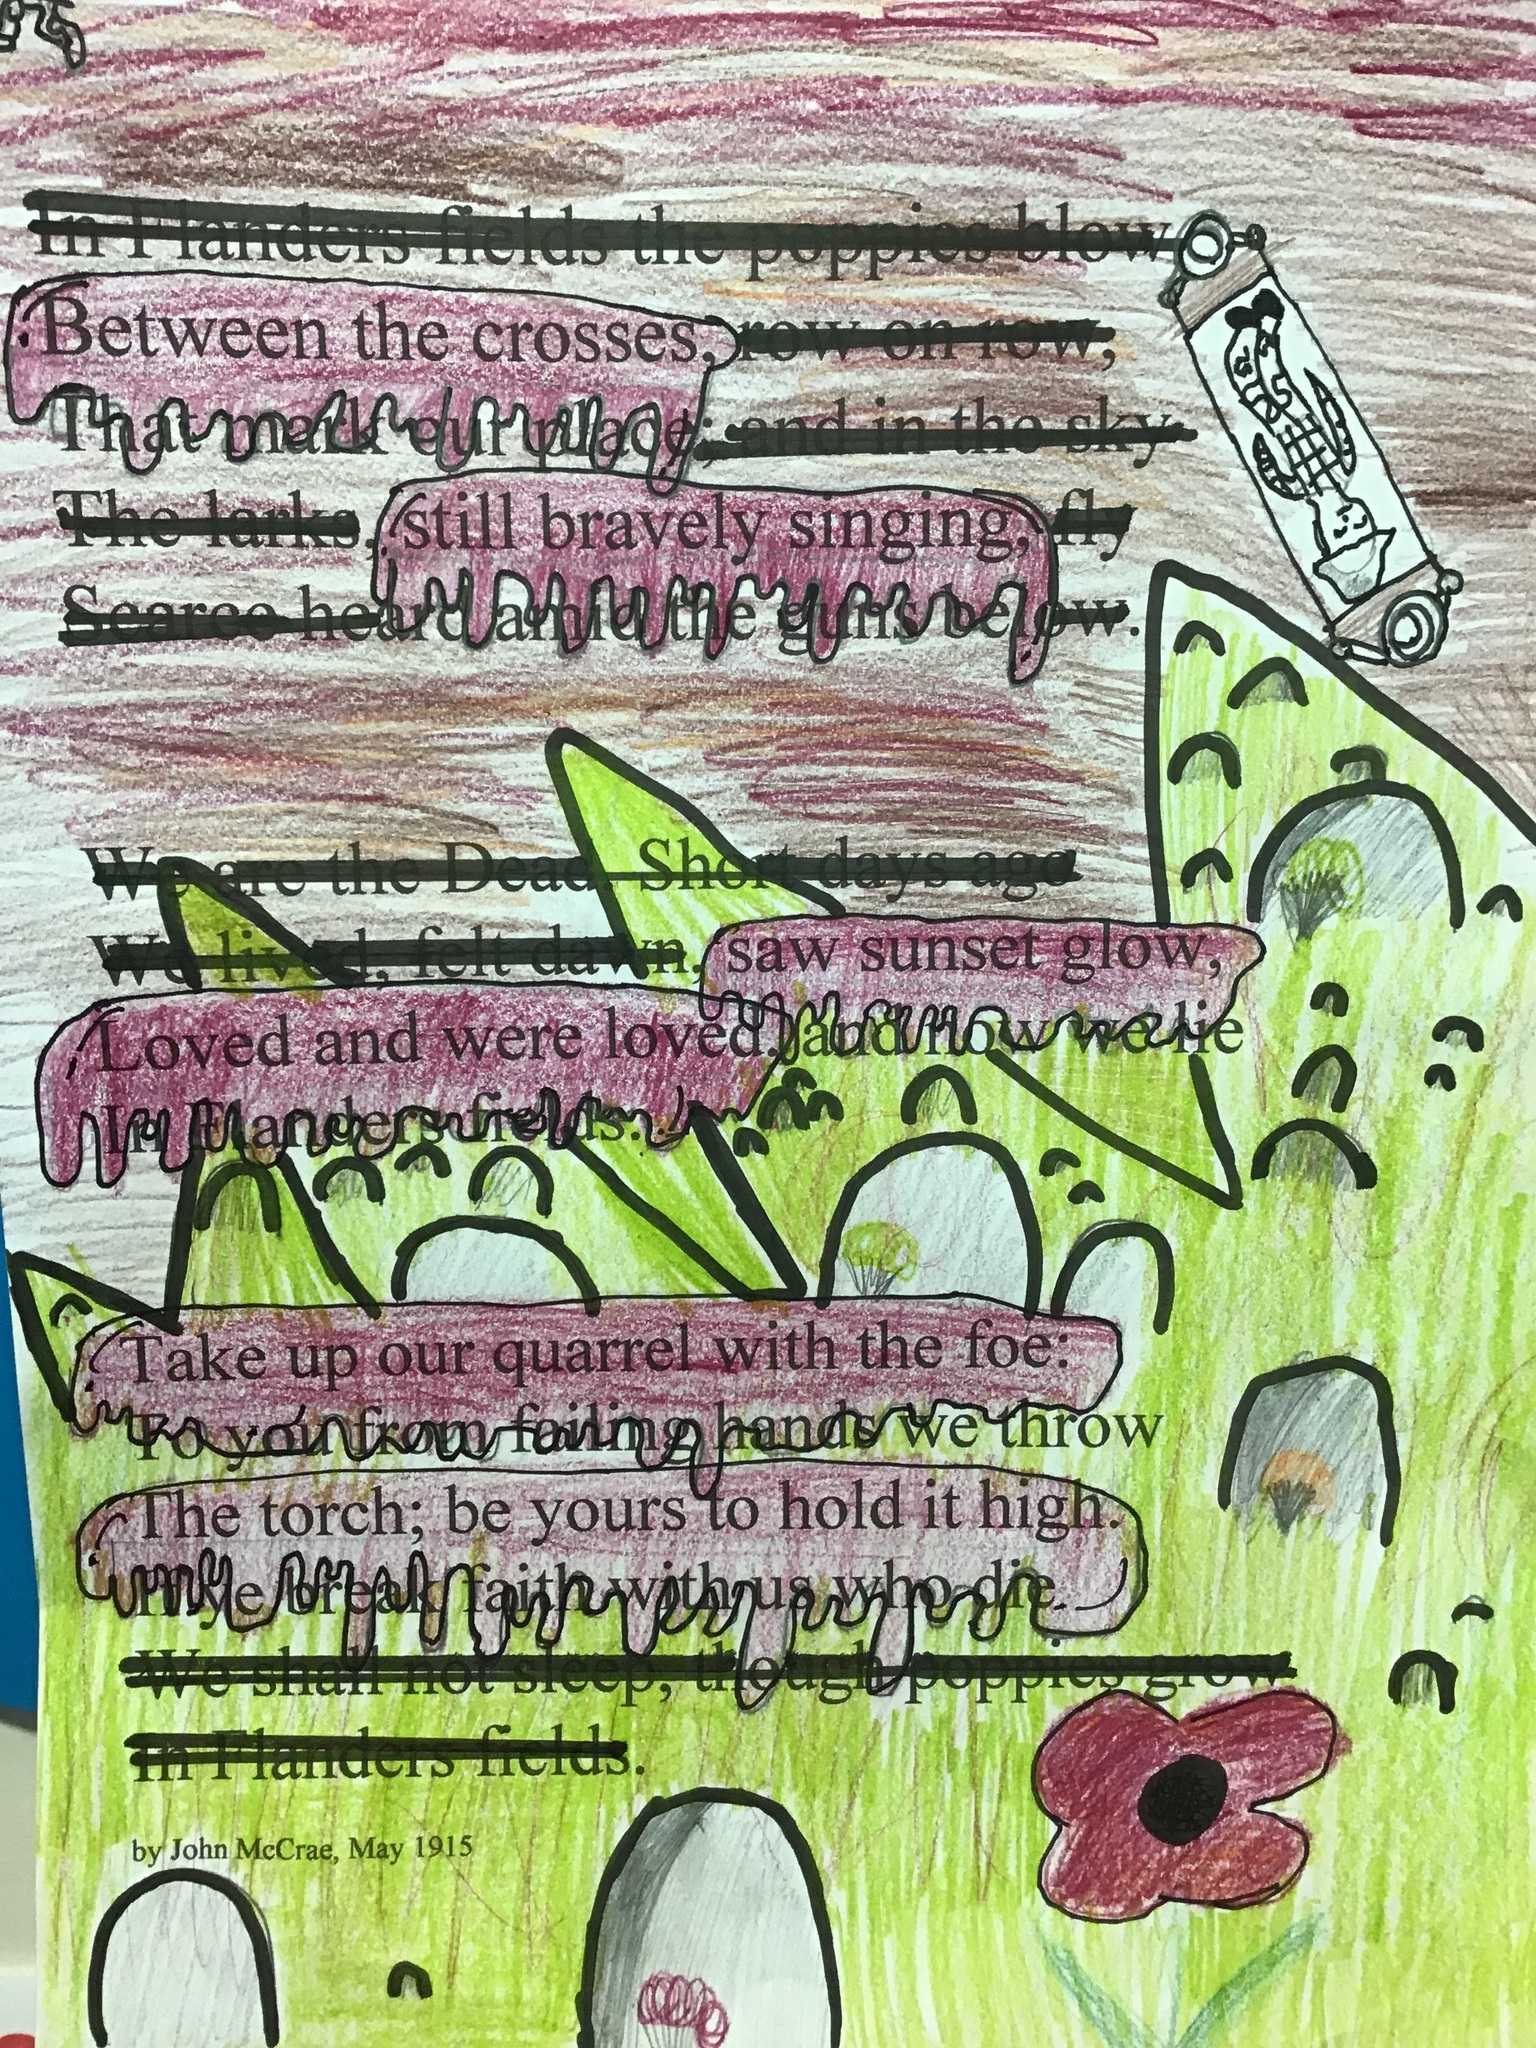 In Flanders fields the poppies blow
Between the crosses, row on row,
That mark our place; and in the sky
The larks, still bravely singing, fly
Scarce heard amid the guns below.
We are the Dead. Short days ago
We lived, felt dawn, saw sunset glow,
Loved and were loved, and now we lie
In Flanders fields.
Take up our quarrel with the foe:
To you from failing hands we throw
The torch; be yours to hold it high.
If ye break faith with us who die
We shall not sleep, though poppies grow
In Flanders fields.
by John McCrae, May 1915